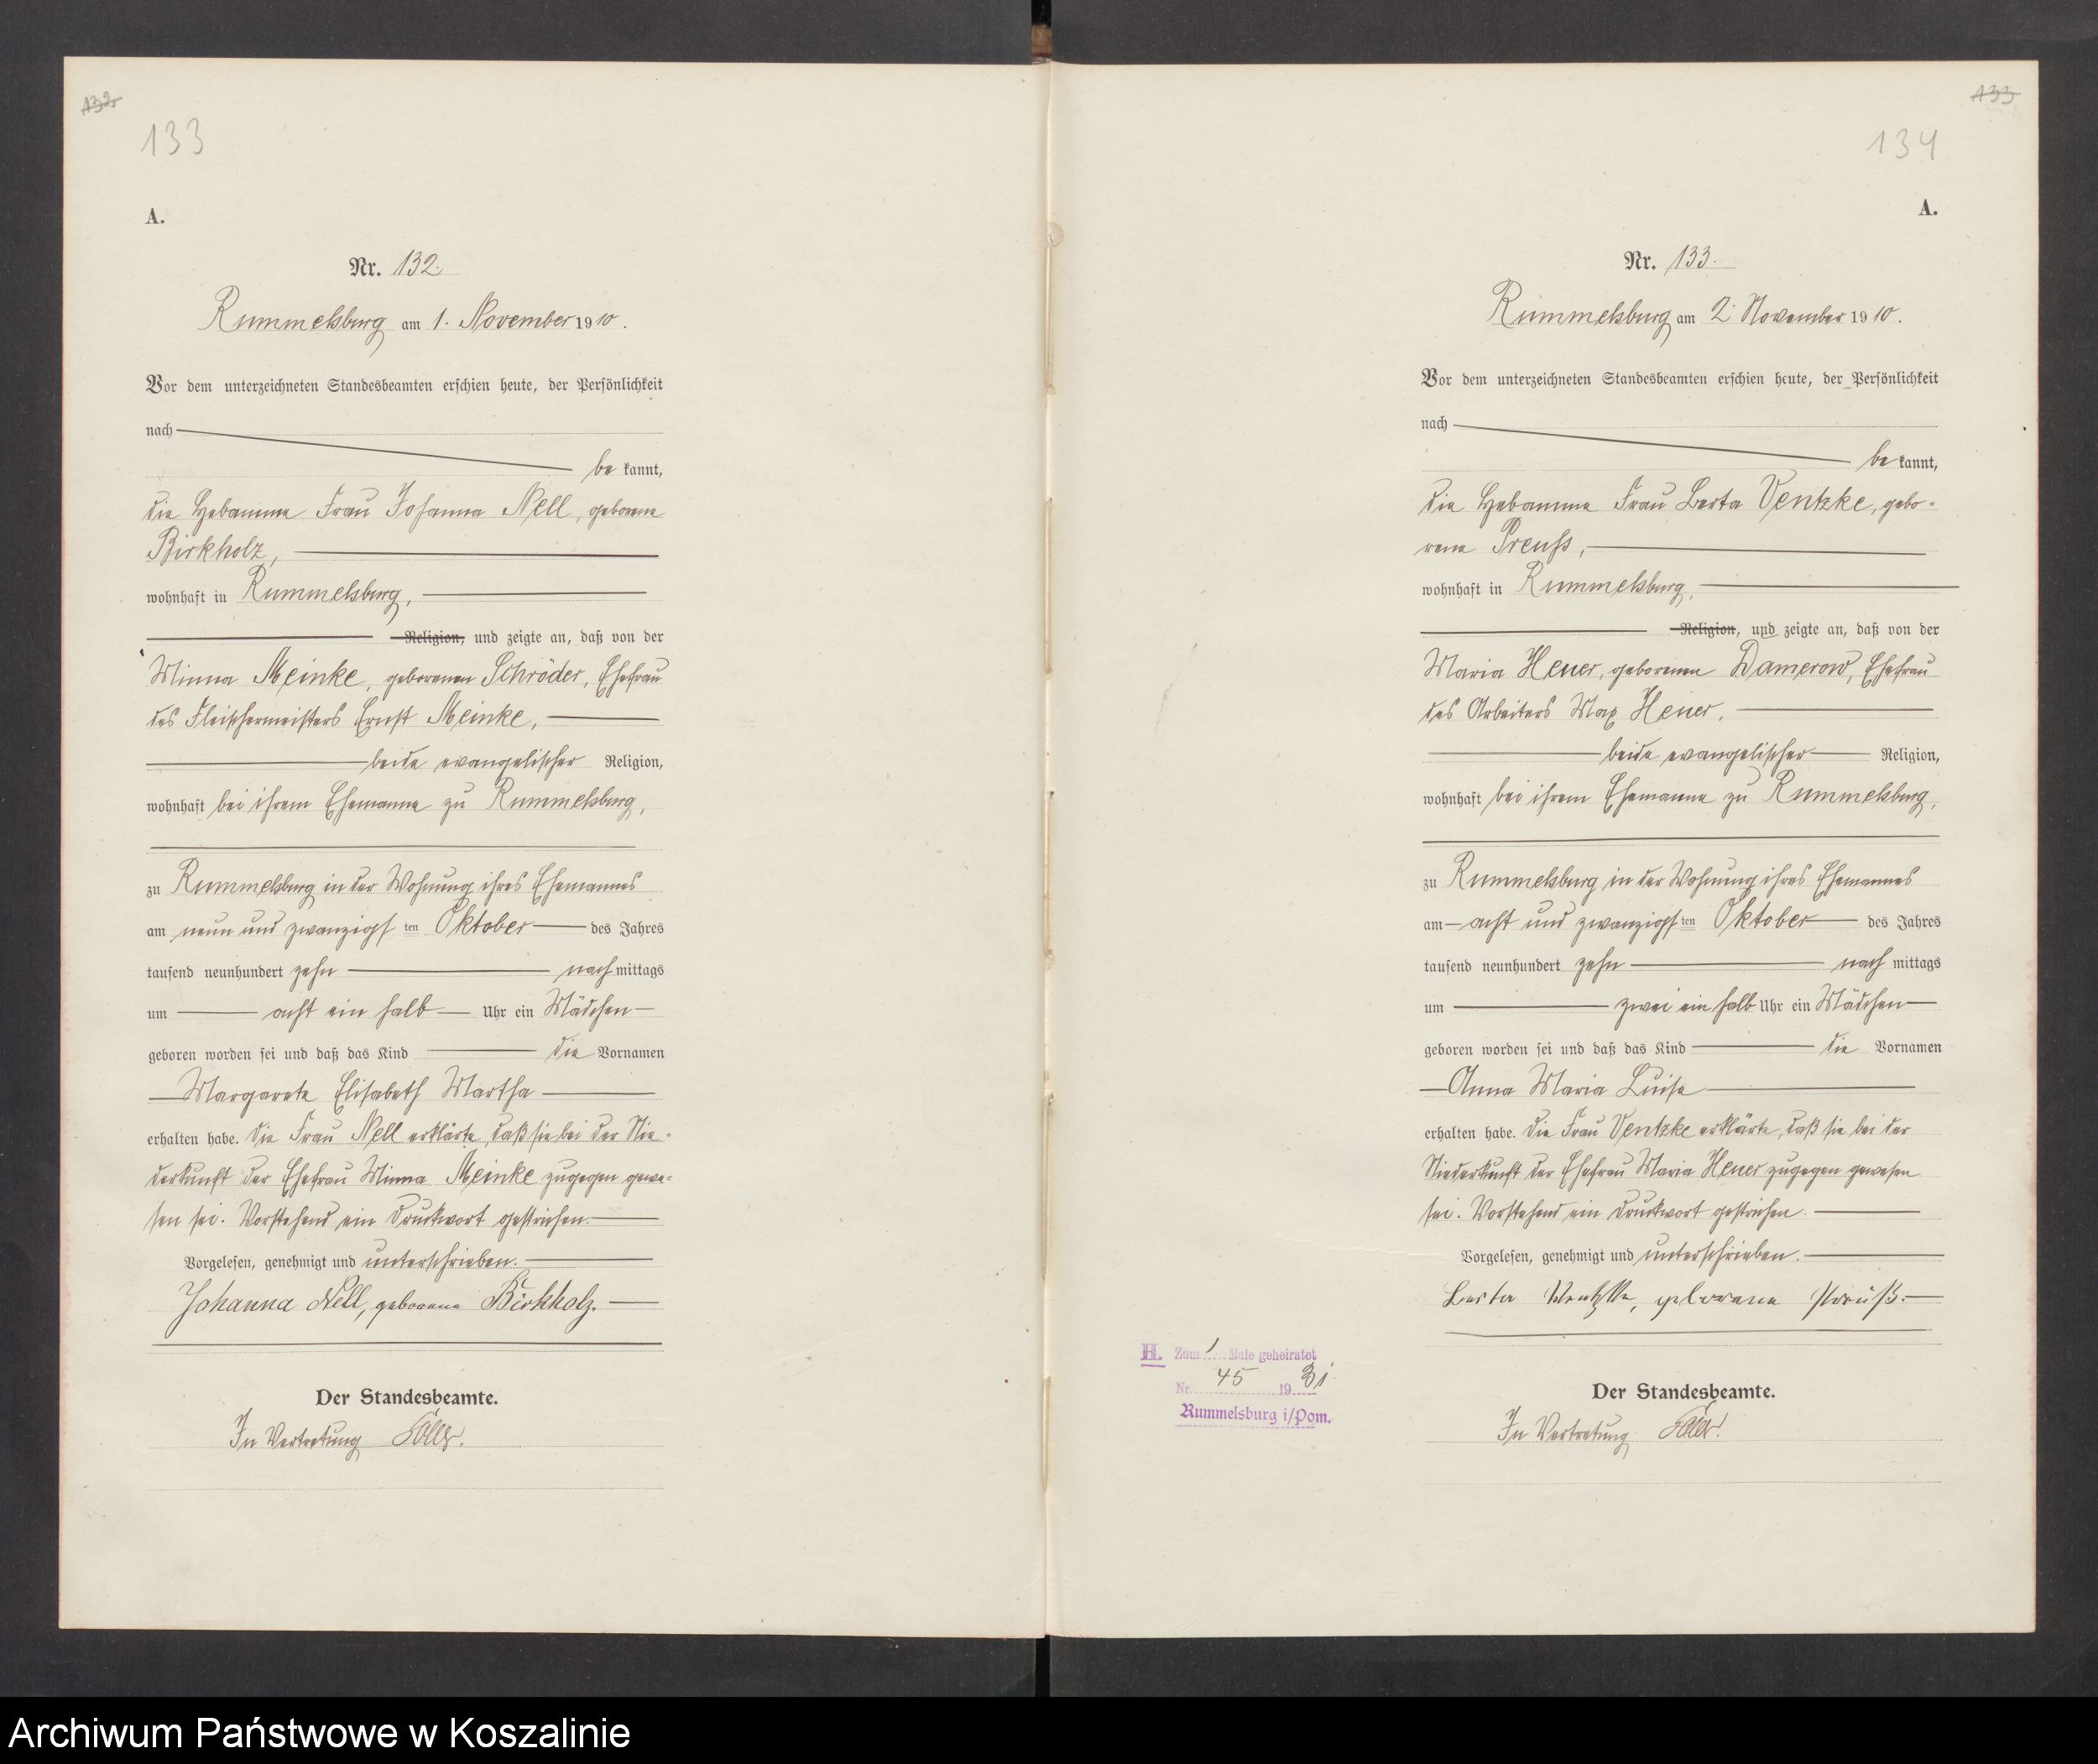 132
133
A.
Nr. 132.
Rummelsburg am 1. November 1910.
Vor dem unterzeichneten Standesbeamten erschien heute, der Persönlichkeit
nach
be kannt,
die Hebamme Frau Johanna Nell, geborene
Birkholz,
wohnhaft in Rummelsburg,
Religion, und zeigte an, daß von der
Minna Meinke, geborenen Schröder, Ehefrau
des Fleischermeisters Ernst Meinke,
beide evangelischer Religion,
wohnhaft bei ihrem Ehemanne zu Rummelsburg,
zu Rummelsburg in der Wohnung ihres Ehemannes
am neun und zwanzigsten Oktober des Jahres
tausend neunhundert zehn nachmittags
um acht ein halb Uhr ein Mädchen
geboren worden sei und daß das Kind die Vornamen
Margarete Elisabeth Martha
erhalten habe. Die Frau Nell erklärte, daß sie bei der Nie-
derkunft der Ehefrau Minna Meinke zugegen gewe-
sen sei. Vorstehend ein Druckwort gestrichen.
Vorgelesen, genehmigt und unterschrieben.
Johanna Nell, geborene Birkholz.
Der Standesbeamte.
In Vertretung
133
134
A.
Nr. 133.
Rummelsburg am 2. November 1910.
Vor dem unterzeichneten Standesbeamten erschien heute, der Persönlichkeit
nach
be kannt,
die Hebamme Frau Berta Ventzke, gebo-
rene Preuß,
wohnhaft in Rummelsburg,
Religion, und zeigte an, daß von der
Maria Heuer, geborenen Damerow, Ehefrau
des Arbeiters Max Heuer,
beide evangelischer Religion,
wohnhaft bei ihrem Ehemanne zu Rummelsburg,
zu Rummelsburg in der Wohnung ihres Ehemannes
am acht und zwanzigsten Oktober des Jahres
tausend neunhundert zehn nachmittags
um zwei ein halb Uhr ein Mädchen
geboren worden sei und daß das Kind die Vornamen
Anna Maria Luise
erhalten habe. Die Frau Ventzke erklärte, daß sie bei der
Niederkunft der Ehefrau Maria Heuer zugegen gewesen
sei. Vorstehend ein Druckwort gestrichen.
Vorgelesen, genehmigt und unterschrieben.
Berta Ventzke, geborene Preuß.
Der Standesbeamte.
In Vertretung
H. Zum 1 Male geheiratet
Nr. 45 1931
Rummelsburg i/Pom.
Archiwum Państwowe w Koszalinie